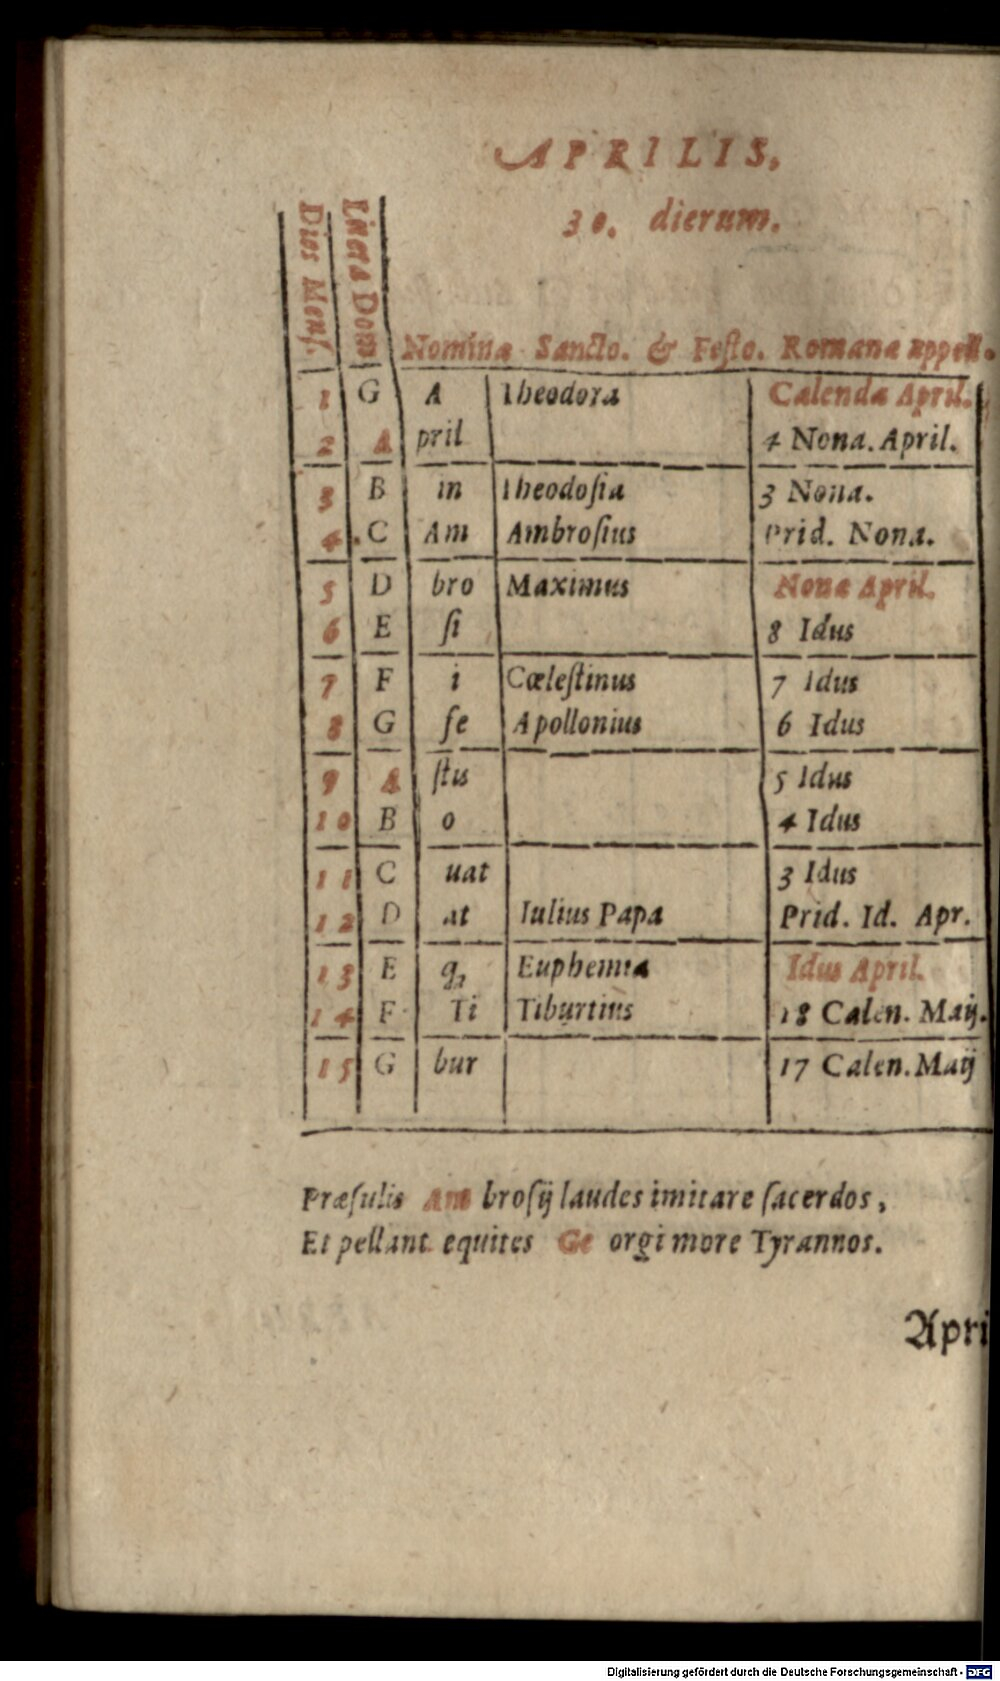 APRILIS,
30. dierum.
Dies Menſ.
Litera Dom
Nomina Sancto. & Feſto. Romana appell.
1 G A Theodora Calendæ April.
2 A pril 4 Nona. April.
3 B in Theodoſia 3 Nona.
4 C Am Ambroſius Prid. Nona.
5 D bro Maximus Nonæ April.
6 E ſi 8 Idus
7 F i Cœleſtinus 7 Idus
8 G fe Apollonius 6 Idus
9 A ſtis 5 Idus
10 B o 4 Idus
11 C uat 3 Idus
12 D at Iulius Papa Prid. Id. Apr.
13 E Euphemia Idus April.
14 F Ti Tiburtius 18 Calen. Maij.
15 G bur 17 Calen. Maij
Præſulis Am broſij laudes imitare ſacerdos,
Et pellant equites Ge orgi more Tyrannos.
Apri
Digitalisierung gefördert durch die Deutsche Forschungsgemeinschaft - DFG